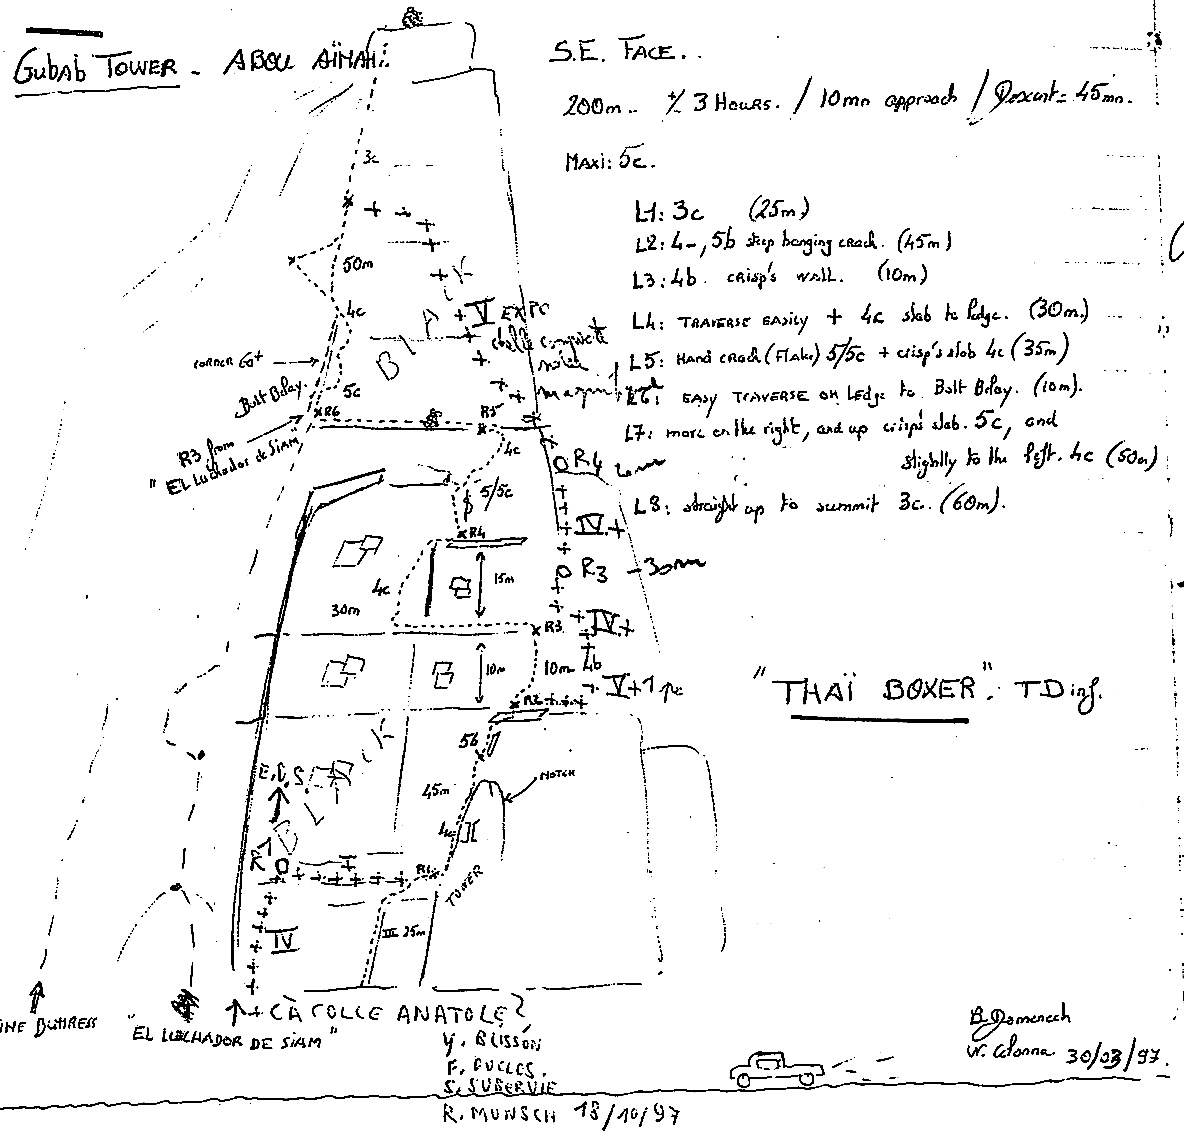 Gubab TOWER - ABOU AÏMAH:
S.E. FACE..
200m.. +/- 3 HOURS. / 10mn approach / Descent = 45mn.
MAXI: 5c.
L1: 3c (25m)
L2: 4-, 5b steep hanging crack. (45m)
L3: 4b. CRISP'S WALL. (10m)
L4: TRAVERSE EASILY + 4c slab to ledge. (30m)
L5: HAND CRACK (FLAKE) 5/5c + crisp's slab 4c (35m)
EASY TRAVERSE ON LEDGE to Bolt Belay. (10m).
L7: more on the right, and up crisp's slab. 5c, and
slightly to the left. 4c (50m)
L8: straight up to summit 3c.. (60m).
3c
50m
4c
BLACK
V EXPO
CORNER 6a+
5c
Bolt Belay.
R6
R5
R3 from
"EL LUCHADOR de SIAM"
4c
R4
5/5c
R4
IV+
15m
R3 -30m
4c
30m
IV+
R3
10m
10m
4b
V+1 pc
R2
"THAÏ BOXER". TD inf.
5b
NOTCH
E.D.S.
45m
BLACK
4c
II
R1
I
R1
TOWER
IV
III 25m
BUTTRESS
"EL LUCHADOR DE SIAM"
ÇÀ COLLE ANATOLE?
Y. BLISSON
F. DUCLOS.
S. SUBERVIE
R. MUNSCH 18/10/97
B. Domenech
W. Colonna 30/03/97.